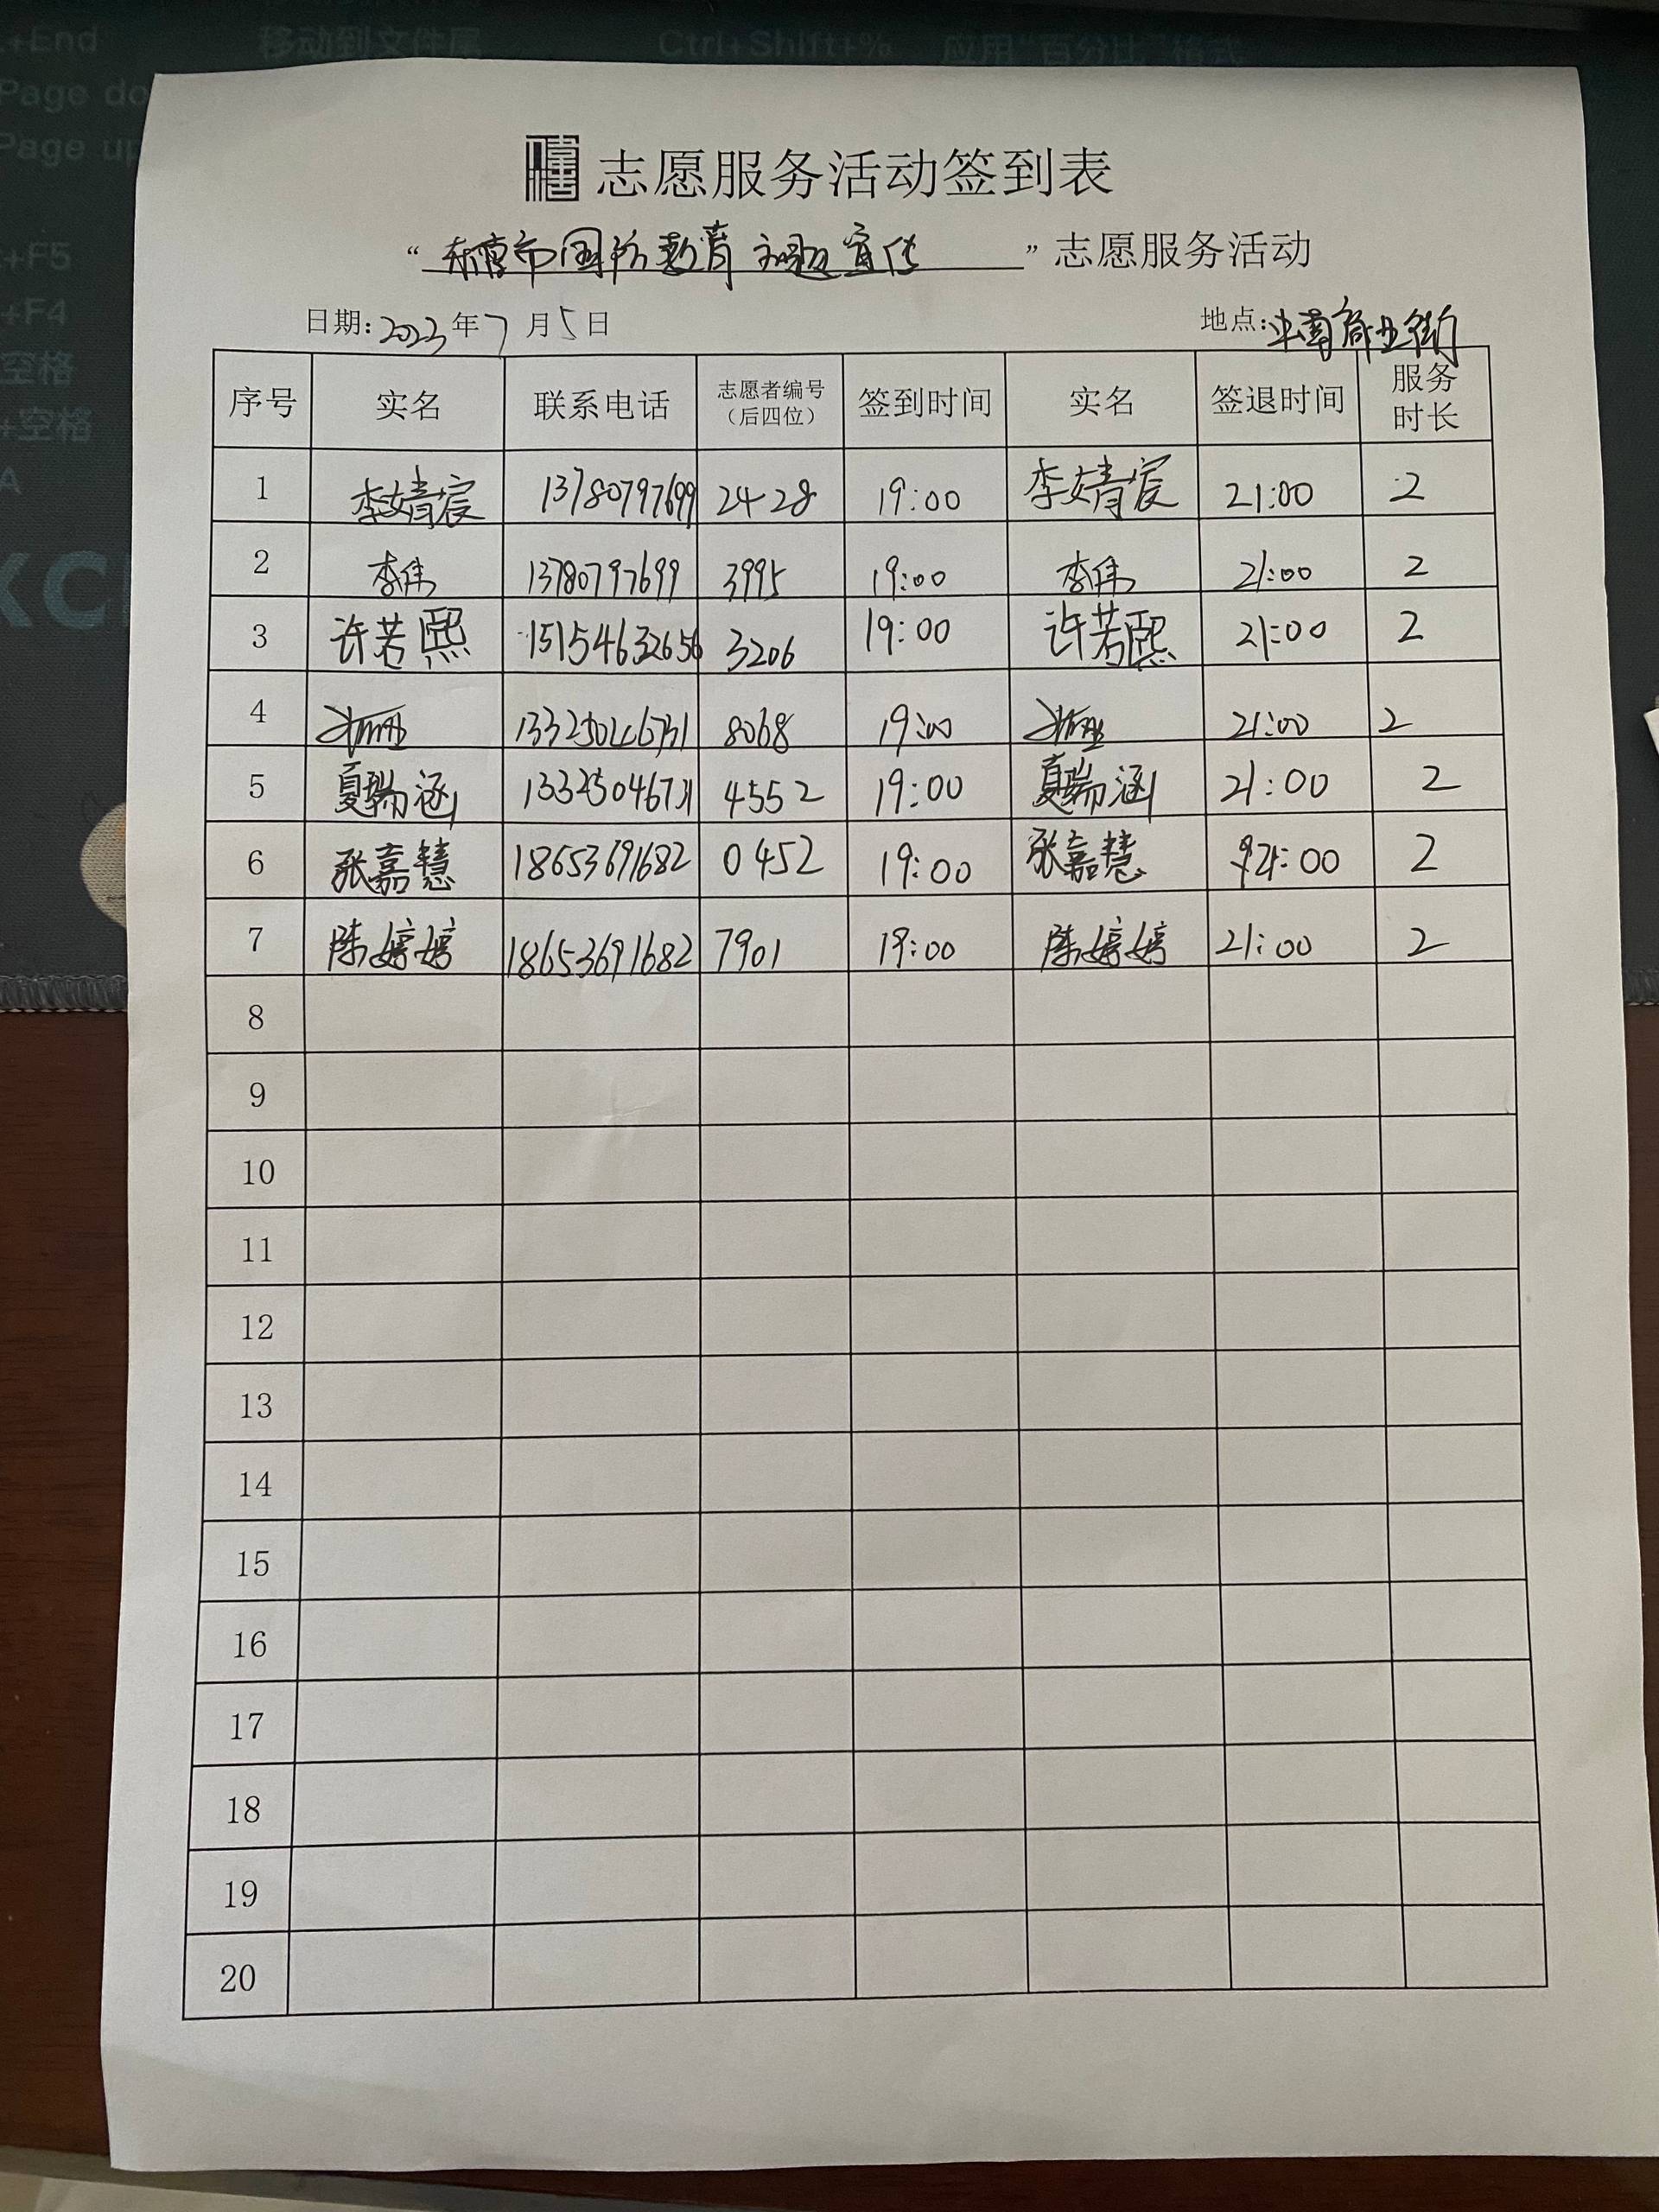 +End 移动到文件尾 Ctrl+Shift+% 应用“百分比”格式
Page do
Page up
+F5
+F4
空格
+空格
A
XC
志愿服务活动签到表
“ 市国防教育主题宣传 ”志愿服务活动
日期:2023年7月5日 地点:商业街
序号 实名 联系电话 志愿者编号（后四位） 签到时间 实名 签退时间 服务时长
1 李婧宸 13780797699 2428 19:00 李婧宸 21:00 2
2 李伟 13780797699 3995 19:00 李伟 21:00 2
3 许若熙 15154632656 3206 19:00 许若熙 21:00 2
4 13325046731 8068 19:00 21:00 2
5 夏瑞涵 13325046731 4552 19:00 夏瑞涵 21:00 2
6 张嘉慧 18653691682 0452 19:00 张嘉慧 21:00 2
7 陈婷婷 18653691682 7901 19:00 陈婷婷 21:00 2
8
9
10
11
12
13
14
15
16
17
18
19
20